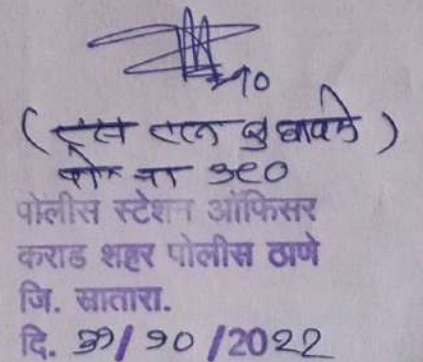 (एस एल बुधावले)
पो ना ३९०
पोलीस स्टेशन ऑफिसर
कराड शहर पोलीस ठाणे
जि. सातारा.
दि. /१०/2022